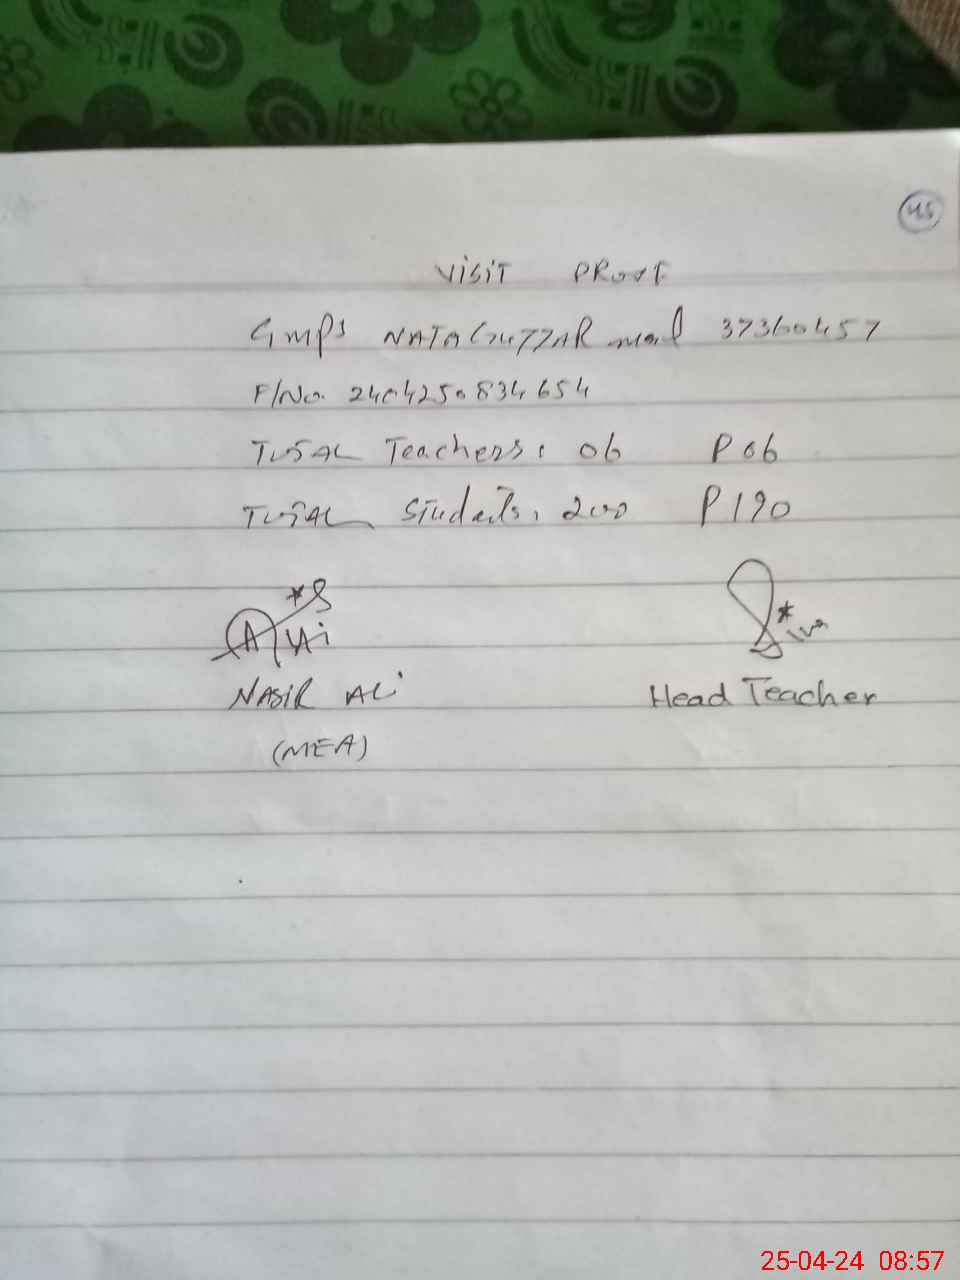 45
VISIT PROOF
GMPS NATA GUJJAR 37360457
F/No. 2404250834654
TOTAL Teachers: 06 P 06
TOTAL Students, 200 P 190
NASIR ALI Head Teacher
(MEA)
25-04-24 08:57